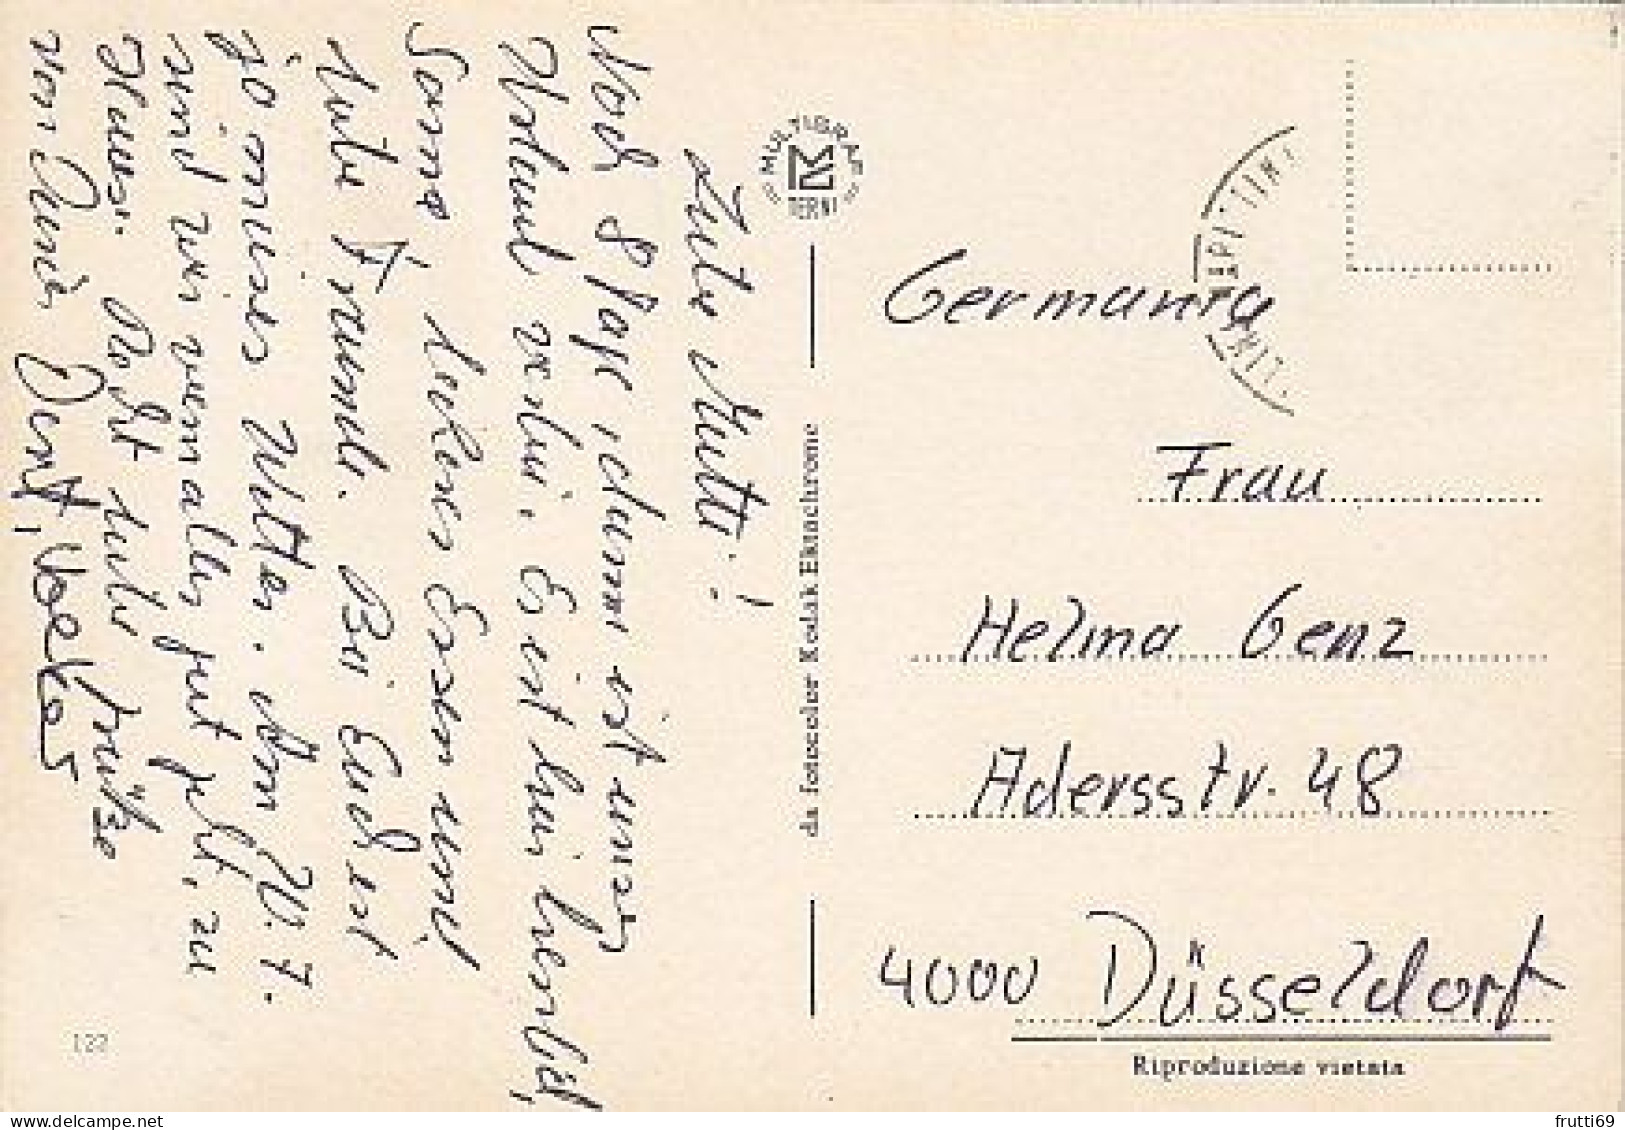 Liebe Mutti!
Noch 8 Tage, dann ist unser
Urlaub vorbei. Es ist hier herrlich,
Sonne, lecker Essen und
liebe Freunde. Bei Euch ist
ja mieses Wetter. Am 20.7.
sind wir wenn alles gut geht, zu
Hause. Recht liebe Grüße
von Deiner
MULTIGRAF
TERNI
da fotocolor Kodak Ektachrome
Germania
Frau
Helma Genz
Adersstr. 48
4000 Düsseldorf
Riproduzione vietata
122
frutti69